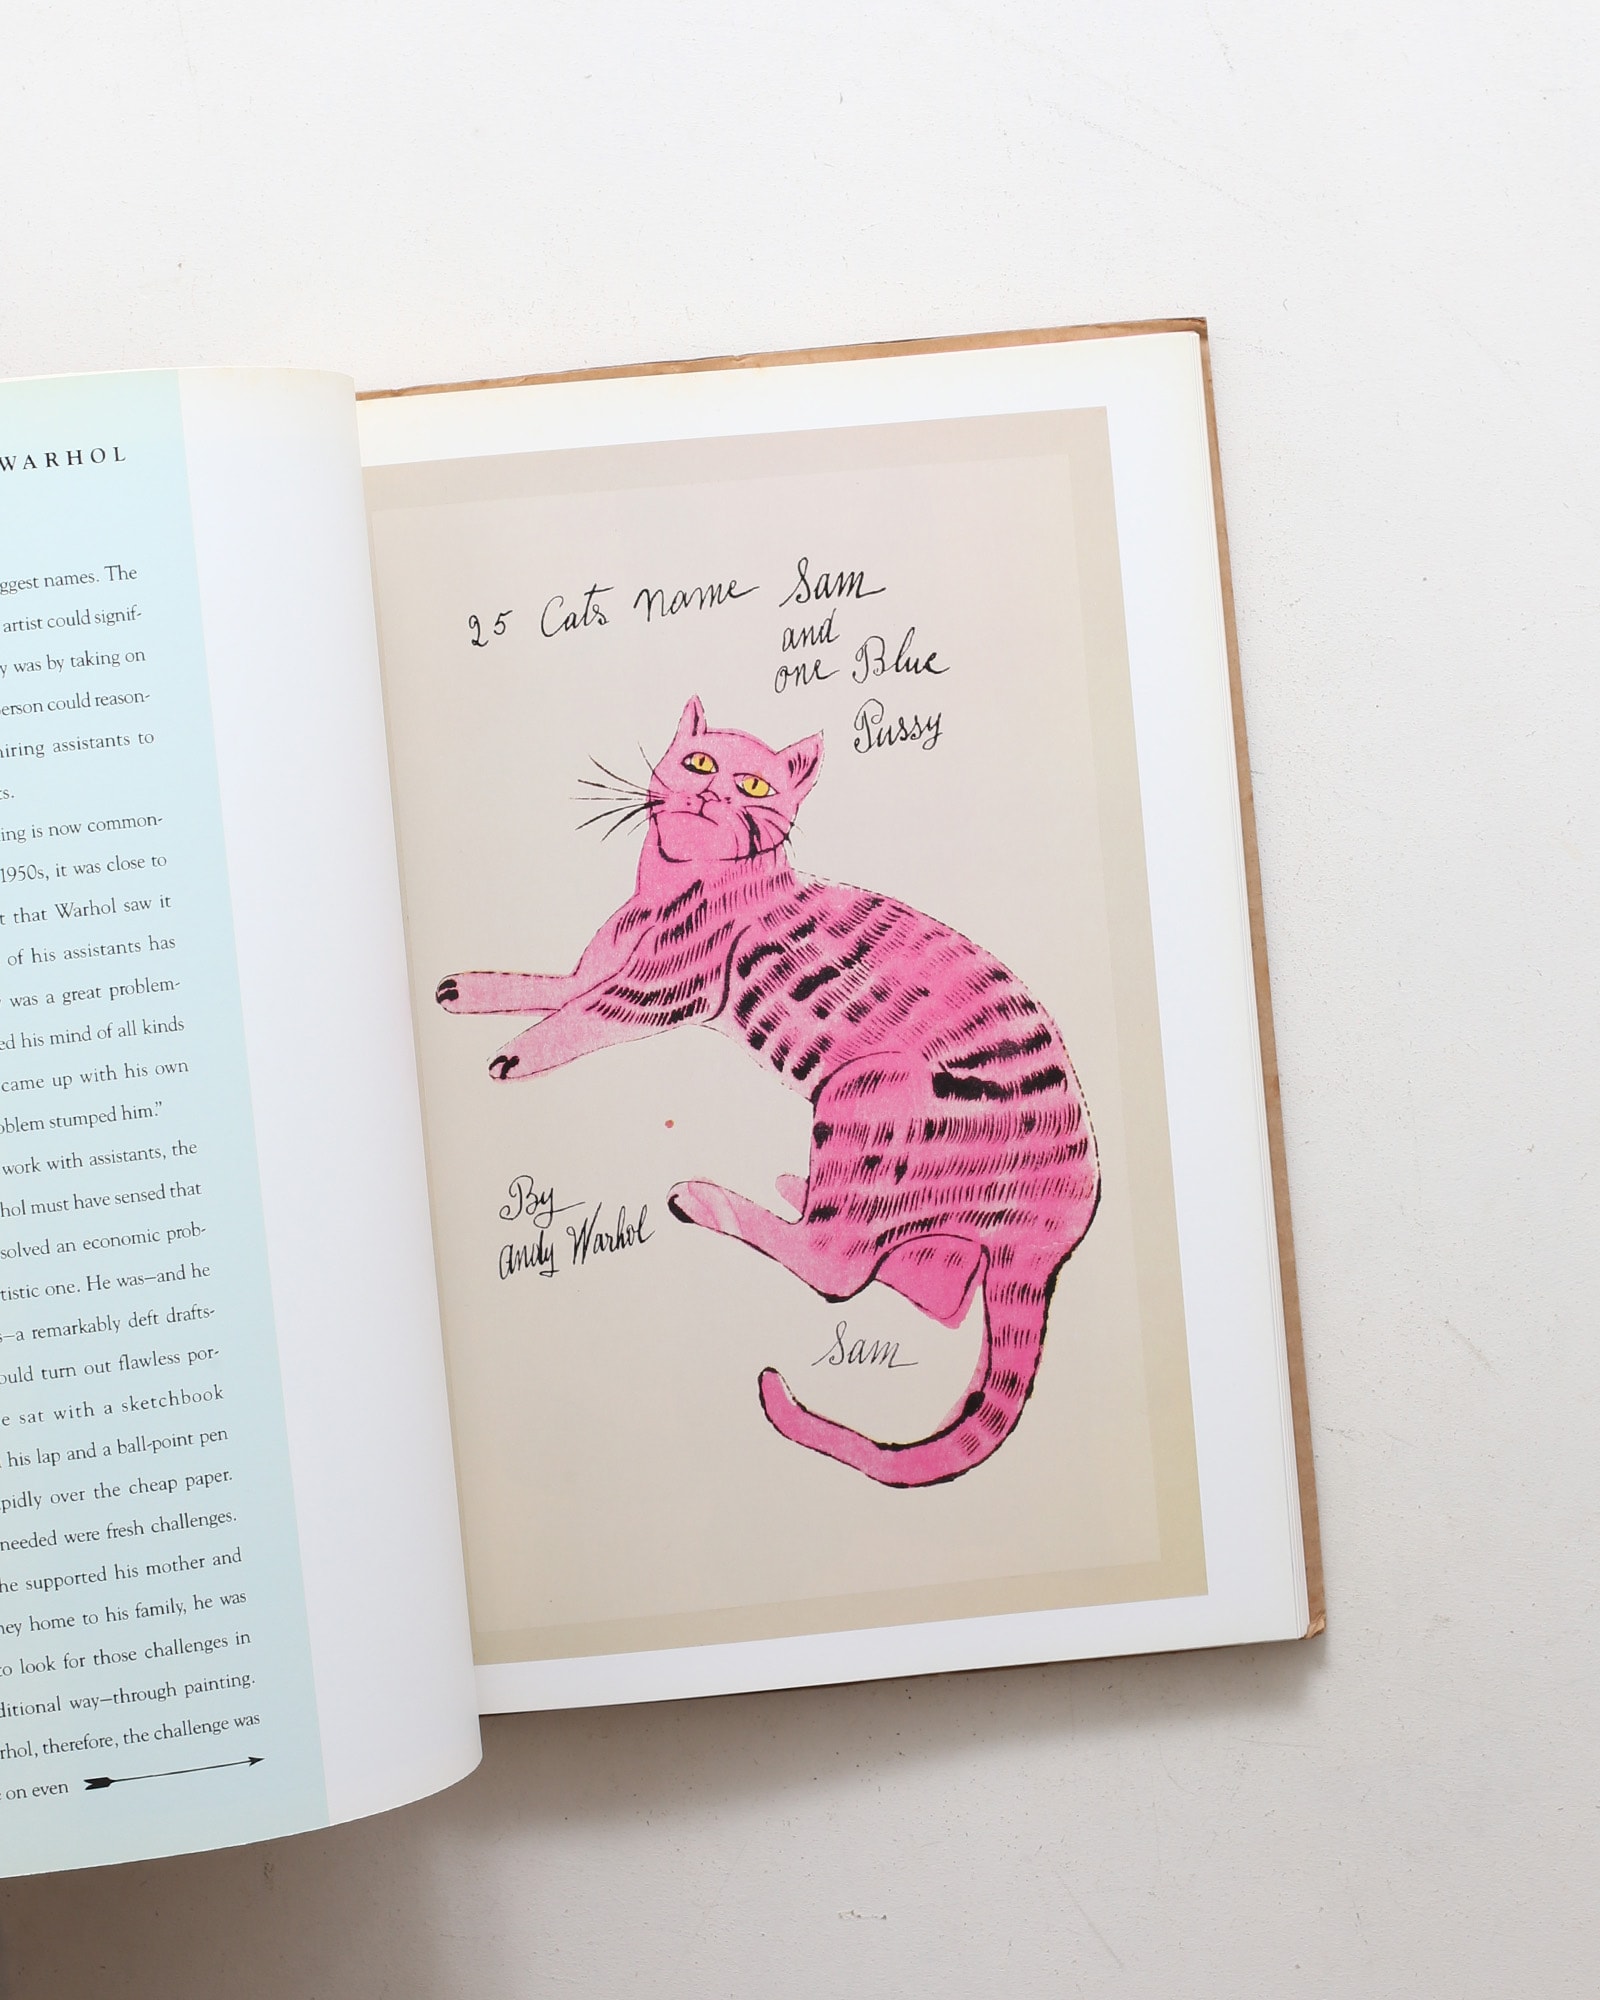 WARHOL
names. The
artist could signif-
was by taking on
could reason-
assistants to
is now common-
1950s, it was close to
that Warhol saw it
of his assistants has
was a great problem-
his mind of all kinds
came up with his own
stumped him.”
work with assistants, the
must have sensed that
solved an economic prob-
one. He was—and he
—a remarkably deft drafts-
turn out flawless por-
sat with a sketchbook
his lap and a ball-point pen
over the cheap paper.
needed were fresh challenges.
he supported his mother and
home to his family, he was
to look for those challenges in
way—through painting.
therefore, the challenge was
on even
25 Cats name Sam
and
one Blue
Pussy
By
Andy Warhol
Sam